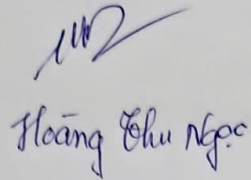 Hoāng Thu Ngọc